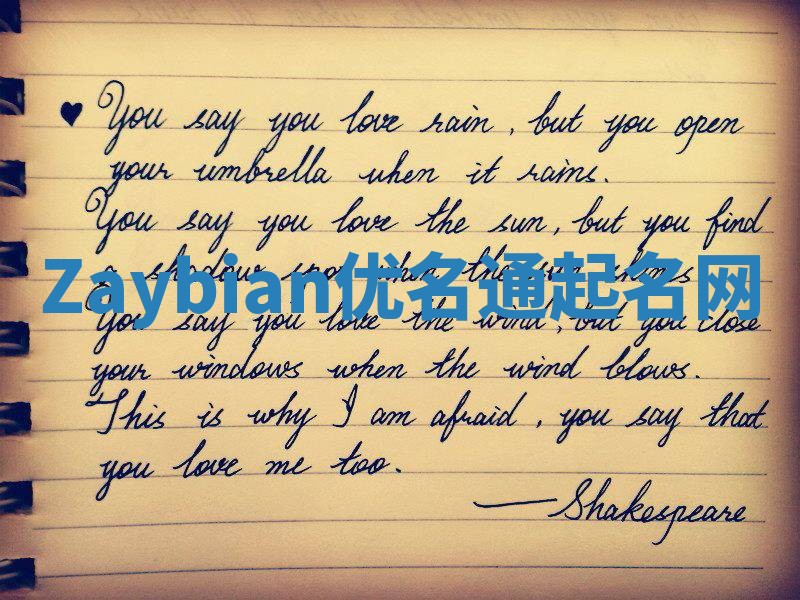 ♥ You say you love rain, but you open
your umbrella when it rains.
You say you love the sun, but you find
a shadow spot when the sun shines
Zaybian优名通起名网
You say you love the wind, but you close
your windows when the wind blows.
This is why I am afraid, you say that
you love me too.
—Shakespeare